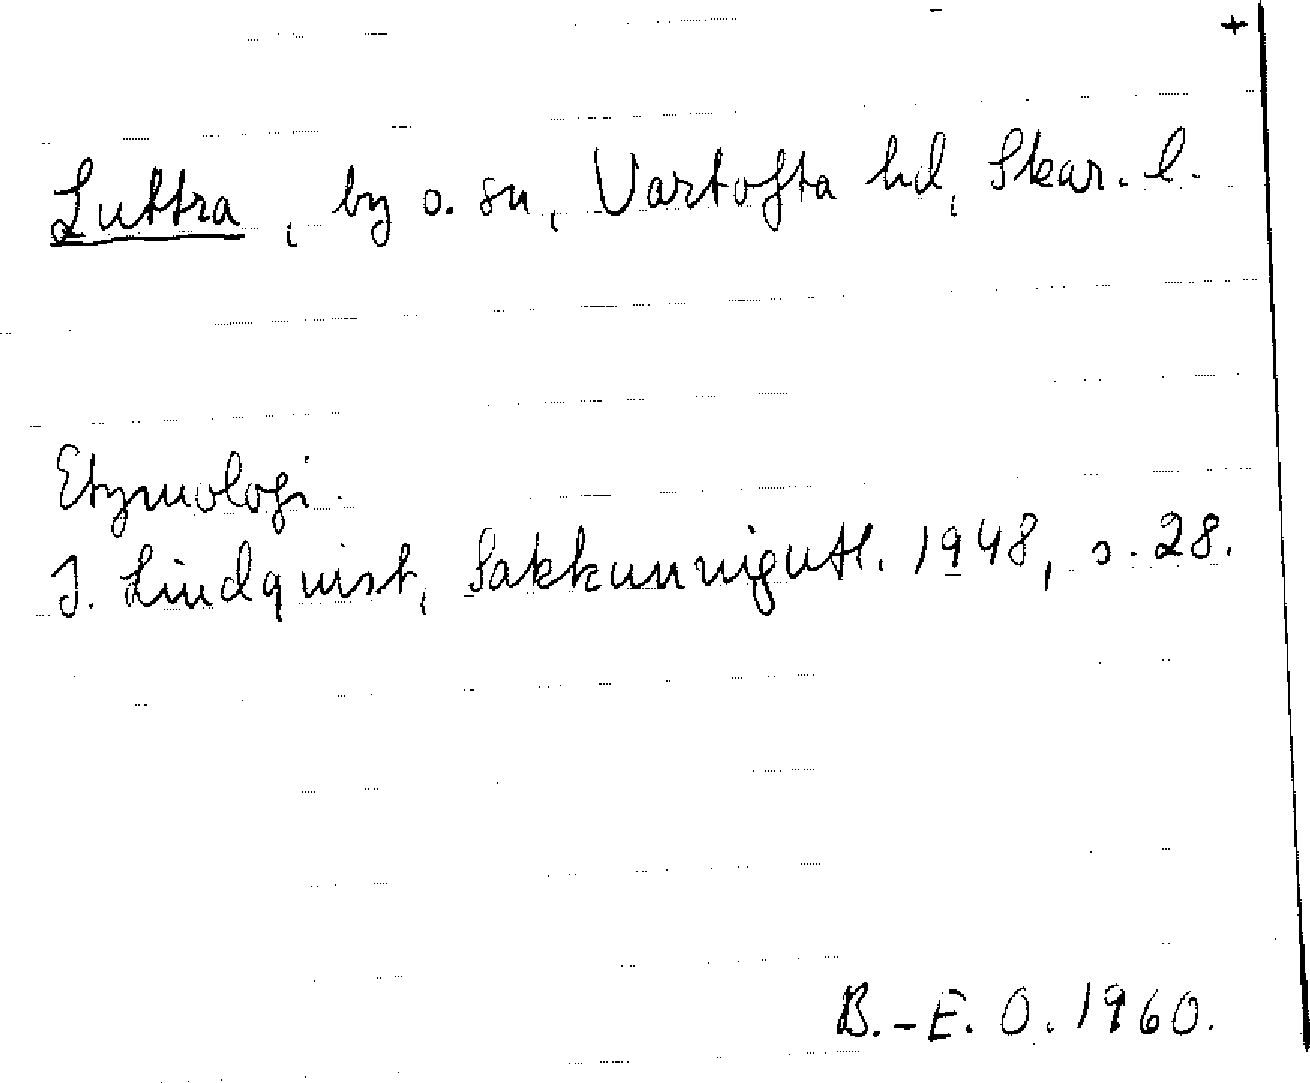 +
Luttra, by o. sn, Vartofta hd, Skar. l.
Etymologi.
I. Lindquist, Sakkunnigutl. 1948, s. 28.
B.-E. O. 1960.